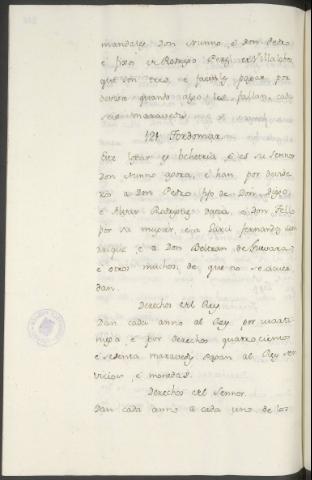 mandales Don Nunno, e Don Pedro
e fixo de Rodrigo Perez de Villalobos
que son tres, e faciles pagar por
derecho quanto algo les fallan, cada
seis maravedis
121 Tordomar
Este logar es behetria, e es su Sennor
Don Nunno agora, e han por devise
ros a Don Pedro fijo de Don Diego
e Alvar Rodriguez Daza, e Don Tello
por su muger, e a Garci Fernandez Man
rique, e a Don Beltran de Guevara
e otros muchos, de que no se acuer
dan.
Derechos del Rey
Dan cada anno al Rey por marti
niega e por derechos quatrocientos
e sesenta maravedis e pagan al Rey ser
vicios, e monedas.
Derechos del Sennor.
Dan cada anno a cada uno de los